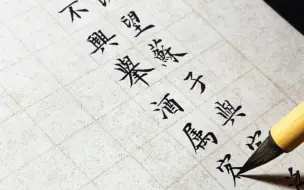 望蘇子與
不興舉酒属客